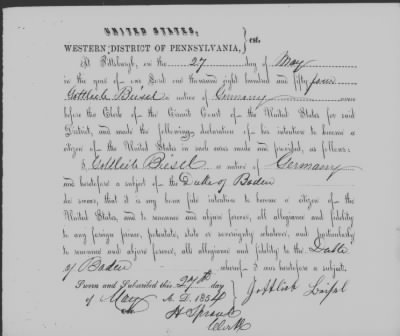 UNITED STATES,
WESTERN DISTRICT OF PENNSYLVANIA, } sct.
At Pittsburgh, on the 27 day of May
in the year of our Lord one thousand eight hundred and fifty four
Gottlieb Beisel a native of Germany came
before the Clerk of the Circuit Court of the United States for said
District, and made the following declaration of his intention to become a
citizen of the United States in such cases made and provided, as follows:
I, Gottlieb Beisel a native of Germany
and heretofore a subject of the Duke of Baden
do swear, that it is bona fide intention to become a citizen of the
United States, and to renounce and abjure forever, all allegiance and fidelity
to any foreign prince, potentate, state or sovereignty whatever, and particularly
to renounce and abjure forever, all allegiance and fidelity to the Duke
of Baden whereof I was heretofore a subject.
Sworn and Subscribed this 27th day
of May A. D. 1854
Gottlieb Beisel
H Sproul
Clerk